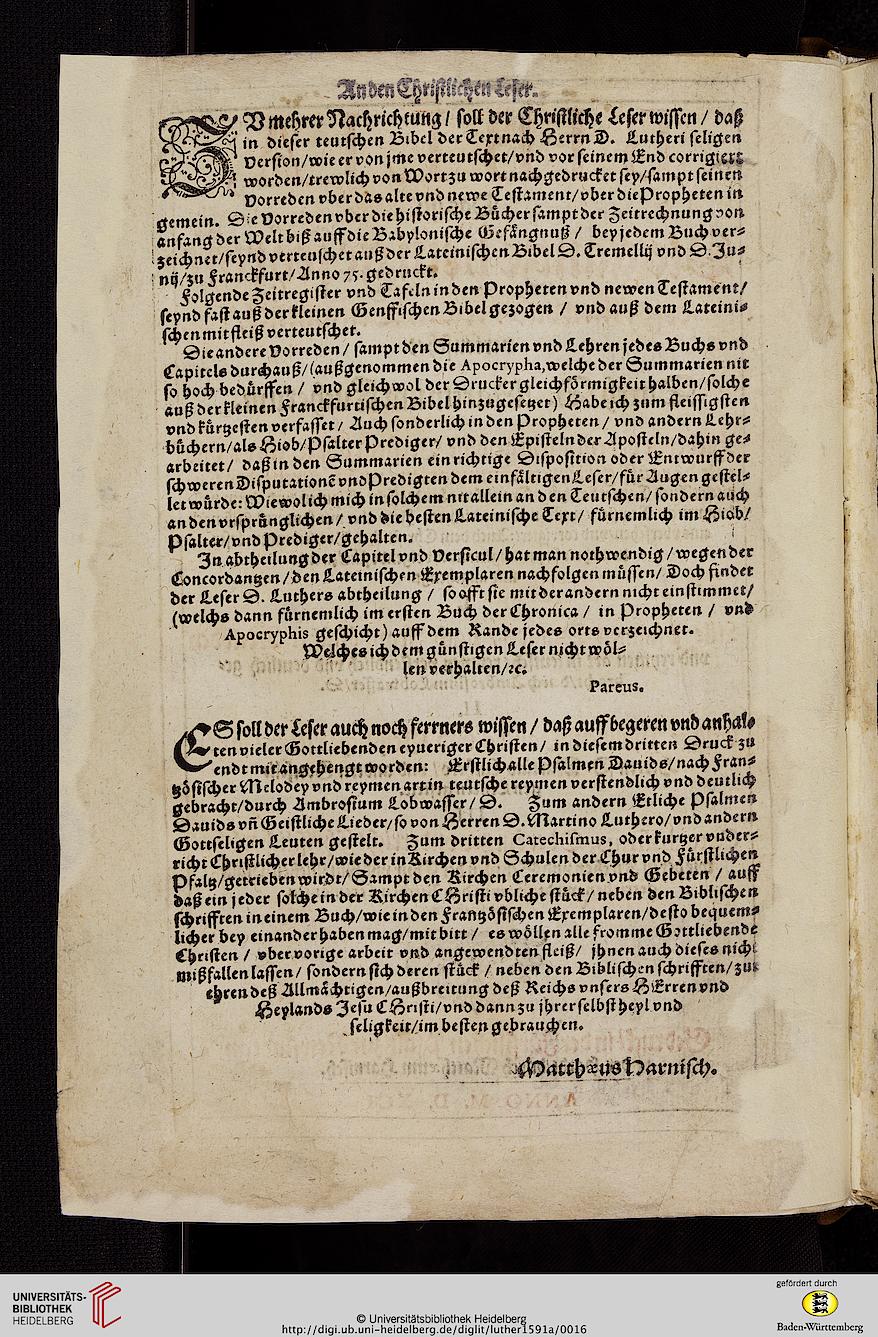 An den Christlichen Leser.
ZU mehrer Nachrichtung / soll der Christliche Leser wissen / daß
in dieser teutschen Bibel der Text nach Herrn D. Lutheri seligen
Version / wie er von jme verteutschet / vnd vor seinem End corrigiert
worden / trewlich von Wort zu wort nachgedrucket sey / sampt seinen
Vorreden vber das alte vnd newe Testament / vber die Propheten in
gemein. Die Vorreden vber die historische Bücher sampt der Zeitrechnung von
anfang der Welt biß auff die Babylonische Gefängnuß / bey jedem Buch ver⸗
zeichnet / seynd verteuschet auß der Lateinischen Bibel D. Tremellij vnd D. Ju⸗
nij / zu Franckfurt / Anno 75. gedruckt.
Folgende Zeitregister vnd Tafeln in den Propheten vnd newen Testament /
seynd fast auß der kleinen Genffischen Bibel gezogen / vnd auß dem Lateini⸗
schen mit fleiß verteutschet.
Die andere Vorreden / sampt den Summarien vnd Lehren jedes Buchs vnd
Capitels durchauß / (außgenommen die Apocrypha, welche der Summarien nit
so hoch bedürffen / vnd gleichwol der Drucker gleichförmigkeit halben / solche
auß der kleinen Franckfurtischen Bibel hinzugesetzet) Habe ich zum fleissigsten
vnd kürtzesten verfasset / Auch sonderlich in den Propheten / vnd andern Lehr⸗
büchern / als Hiob / Psalter Prediger / vnd den Episteln der Aposteln / dahin ge⸗
arbeitet / daß in den Summarien ein richtige Disposition oder Entwurff der
schweren Disputationē vnd Predigten dem einfältigen Leser / für Augen gestel⸗
let würde: Wiewol ich mich in solchem nit allein an den Teutschen / sondern auch
an den vrsprünglichen / vnd die besten Lateinische Text / fürnemlich im Hiob /
Psalter / vnd Prediger / gehalten.
In abtheilung der Capitel vnd Versicul / hat man nothwendig / wegen der
Concordantzen / den Lateinischen Exemplaren nachfolgen müssen / Doch findet
der Leser D. Luthers abtheilung / so offt sie mit der andern nicht einstimmet /
(welchs dann fürnemlich im ersten Buch der Chronica / in Propheten / vnd
Apocryphis geschicht) auff dem Rande jedes orts verzeichnet.
Welches ich dem günstigen Leser nicht wöl⸗
len verhalten / ꝛc.
Pareus.
ES soll der Leser auch noch ferrners wissen / daß auff begeren vnd anhal⸗
ten vieler Gottliebenden eyueriger Christen / in diesem dritten Druck zu
endt mit angehengt worden: Erstlich alle Psalmen Dauids / nach Fran⸗
tzösischer Melodey vnd reymen art in teutsche reymen verstendlich vnd deutlich
gebracht / durch Ambrosium Lobwasser / D. Zum andern Etliche Psalmen
Dauids vn̄ Geistliche Lieder / so von Herren D. Martino Luthero / vnd andern
Gottseligen Leuten gestelt. Zum dritten Catechismus, oder kurtzer vnder⸗
richt Christlicher lehr / wie der in Kirchen vnd Schulen der Chur vnd Fürstlichen
Pfaltz / getrieben wirdt / Sampt den Kirchen Ceremonien vnd Gebeten / auff
daß ein jeder solche in der Kirchen CHristi vbliche stück / neben den Biblischen
schrifften in einem Buch / wie in den Frantzösischen Exemplaren / desto bequem⸗
licher bey einander haben mag / mit bitt / es wöllen alle fromme Gottliebende
Christen / vber vorige arbeit vnd angewendten fleiß / jhnen auch dieses nicht
mißfallen lassen / sondern sich deren stück / neben den Biblischen schrifften / zu
ehren deß Allmächtigen / außbreitung deß Reichs vnsers HErren vnd
Heylands Jesu CHristi / vnd dann zu jhrer selbst heyl vnd
seligkeit / im besten gebrauchen.
Matthæus Harnisch.
UNIVERSITÄTS-
BIBLIOTHEK
HEIDELBERG
© Universitätsbibliothek Heidelberg
http://digi.ub.uni-heidelberg.de/diglit/luther1591a/0016
gefördert durch
Baden-Württemberg